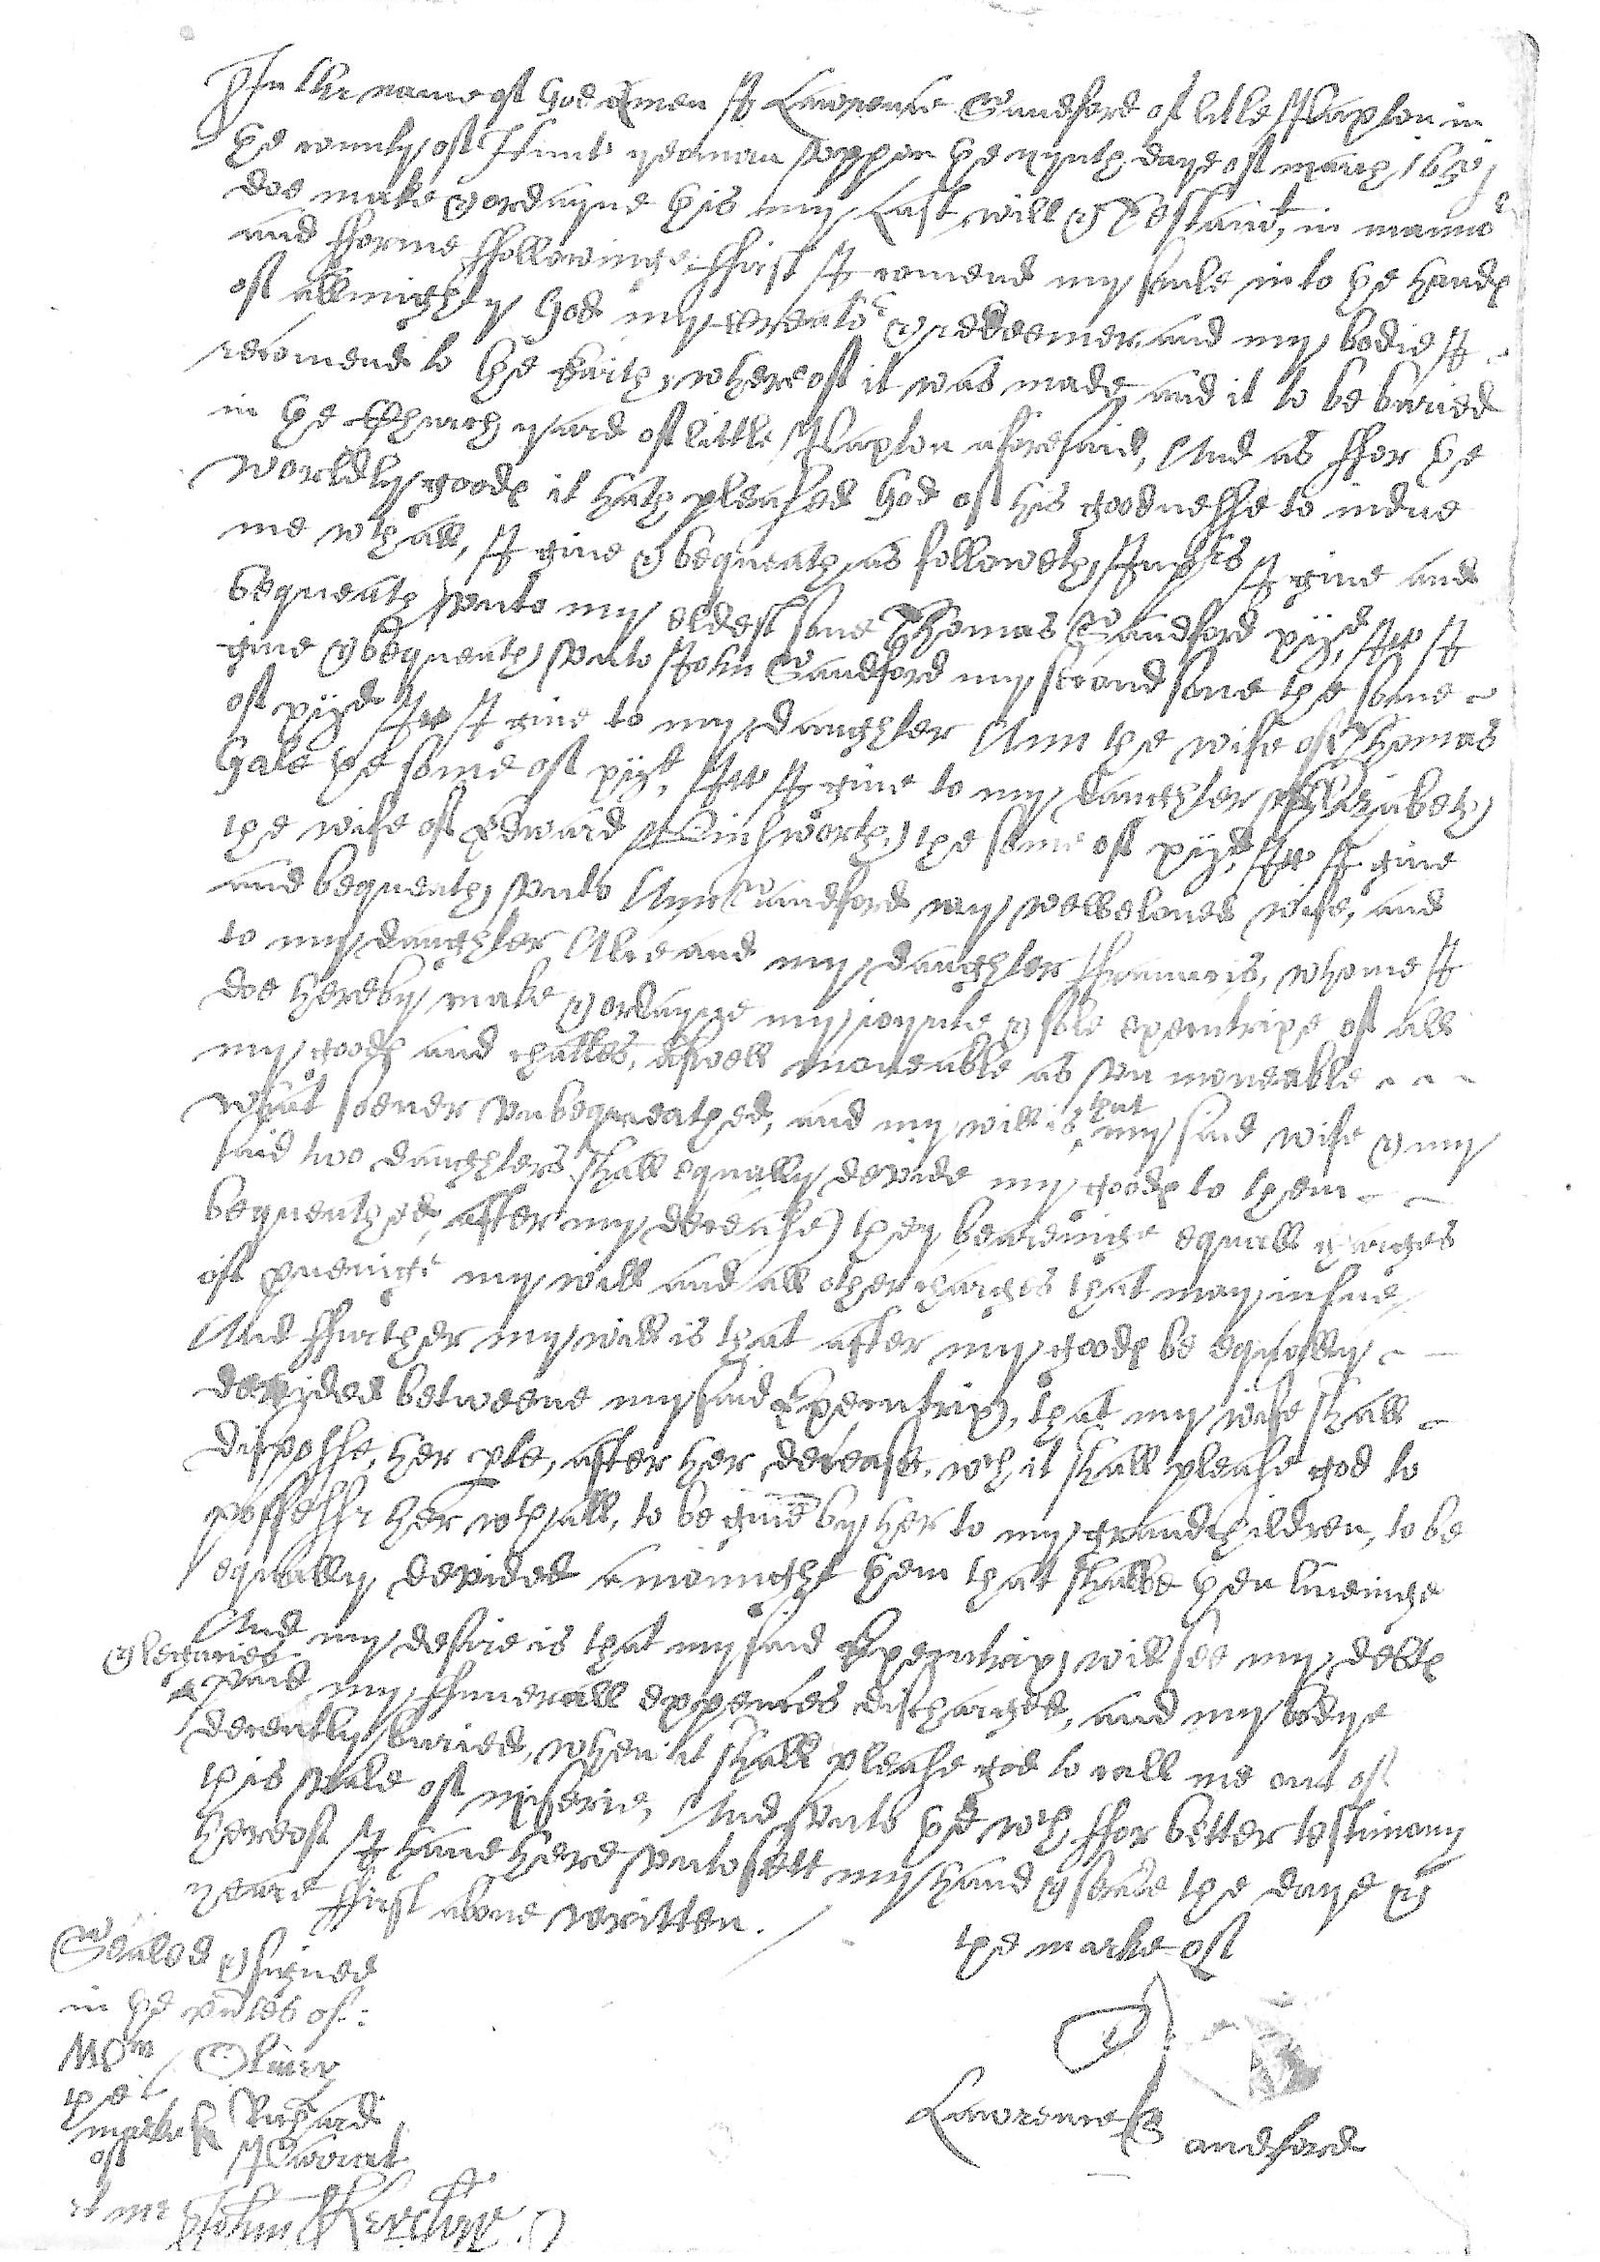 In the name of God Amen I Lawrence Sandford of litle Staplton in
ye county of Hunt yeoman uppon ye nynth daye of march
doe make & ordayne this my Last will & Testamt, in manner
and fforme ffollowinge ffirst I comend my soule into ye hands
of allmighty God my creator & redeemer and my bodie I
recomend to the Earth, whereof it was made and it to be buried
in ye Church yard of little aforesaid, And as ffor ye
worldly goods it hath pleased God of his goodnesse to indue
me wthall, I give & bequeath as followeth, Inpris I give and
bequeath vnto my eldest sone Thomas Sandford xijd, Itm I
give & bequeath vnto John Sandford my second sone the some
of xijd Itm I give to my daughter Ann the wife of Thomas
Gale ye some of xijd, Itm I give to my daughter Elizabeth
the wife of Edward the some of xijd, Itm I give
and bequeath vnto Ann Sandford my welbeloved wife, and
to my daughter Alce and my daughter ffrauncis, whome I
doe hereby make & ordayne my joynte & sole executrixe of all
my goods and chattles, aswell moveable as vn moveable
what soever vnbequeathed, and my will is that my said wife & my
said two daughters shall equally devide my goods to them
bequeathed, after my decease, they beareinge equall charges
of proveinge my will and all other charges that may insue
And ffurther my will is that after my goods be equally
devyded betweene my said Executrix, that my wife shall
disposse, her pte, after her decease, wch it shall please god to
possesse her wthall, to be given by her to my grandchildren, to be
equally devided amounghst them that shalbe then liveinge
And my desire is that my said Executrix will see my debts
& legacies
paid my ffunerall expences discharged, and my bodye
decently buried, when it shall please god to call me out of
this vale of miserie, And vnto ye wch ffor better testimony
hereof I have here vnto sett my hand & seale the daye &
yeare ffirst above written.
the marke of
Lawrence Sandford
Sealed & signed
in ye pnces of:
Wm Oliver
the
marke Richard
of
et me John